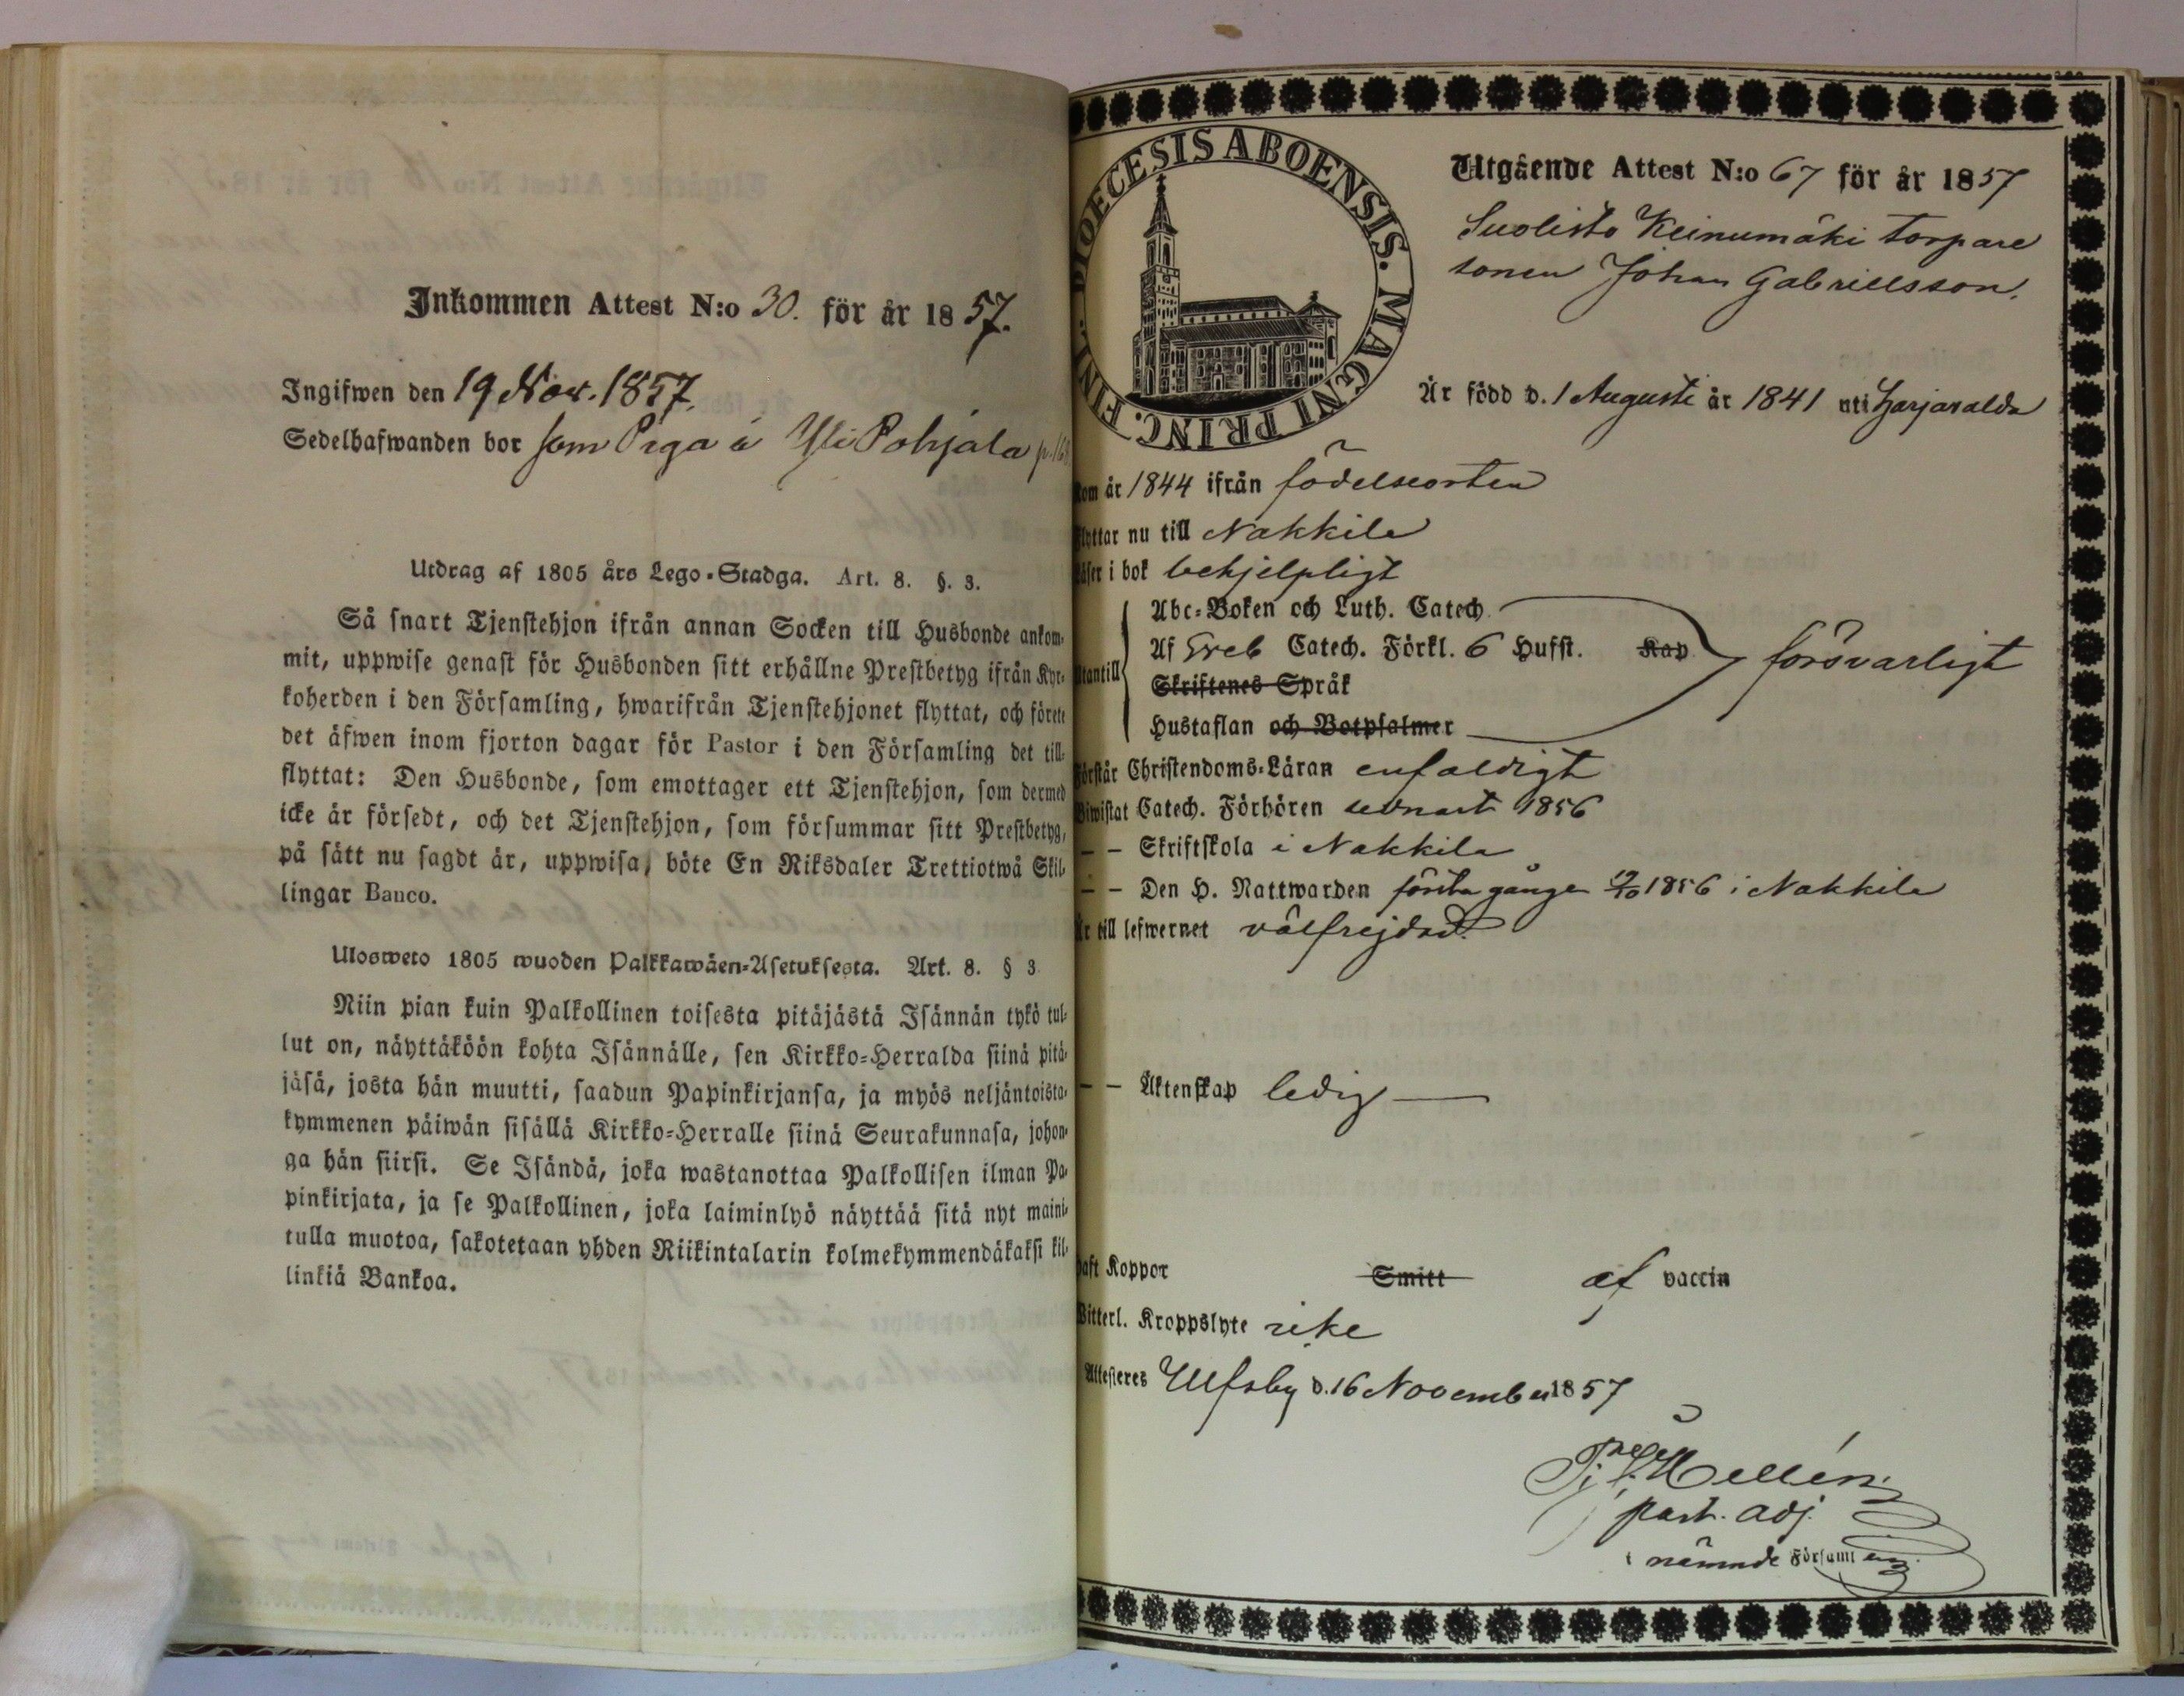 Inkommen Attest N:o 30. för år 1857.
Ingifwen den 19 Nov. 1857.
Sedelhafwanden bor som Piga å Yli Pohjala
Utdrag af 1805 års Lego-Stadga. Art. 8. §. 3.
Så snart Tjenstehjon ifrån annan Socken till Husbonde ankom-
mit, uppwise genast för Husbonden sitt erhållne Prestbetyg ifrån Kyr-
koherden i den Församling, hwarifrån Tjenstehjonet flyttat, och förete
det äfwen inom fjorton dagar för Pastor i den Församling det till-
flyttat: Den Husbonde, som emottager ett Tjenstehjon, som dermed
icke är försedt, och det Tjenstehjon, som försummar sitt Prestbetyg,
på sätt nu sagdt är, uppwisa, böte En Riksdaler Trettiotwå Skil-
lingar Banco.
Ulosweto 1805 wuoden Palkkawäen-Asetuksesta. Art. 8. § 3.
Niin pian kuin Palkollinen toisesta pitäjästä Isännän tykö tul-
lut on, näyttäköön kohta Isännälle, sen Kirkko-Herralda siinä pitä-
jäsä, josta hän muutti, saadun Papinkirjansa, ja myös neljäntoista-
kymmenen päiwän sisällä Kirkko-Herralle siinä Seurakunnasa, johon-
ga hän siirsi. Se Isändä, joka wastanottaa Palkollisen ilman Pa-
pinkirjata, ja se Palkollinen, joka laiminlyö näyttää sitä nyt maini-
tulla muotoa, sakotetaan yhden Riikintalarin kolmekymmendäkaksi kil-
linkiä Bankoa.
DIOECESIS ABOENSIS. MAGNI PRINC. FINL.
Utgående Attest N:o 67 för år 1857
Suolisto Keinumäki torpare
sonen Johan Gabrielsson.
Är född d. 1 Augusti år 1841 uti Harjavalda
kom år 1844 ifrån födelseorten
flyttar nu till Nakkila
Läser i bok behjelpligt
Abc-Boken och Luth. Catech.
Utantill Af Sveb Catech. Förkl. 6 Hufst. Kap försvarligt
Skriftenes Språk
Hustaflan och Botpsalmer
Förstår Christendoms-Läran enfaldigt
Biwistat Catech. Förhören sednast 1856
— — Skriftskola i Nakkila
— — Den H. Nattwarden första gången 12/10 1856 i Nakkila
Är till lefwernet välfrejdad.
— — Äktenskap ledig
haft Koppor Smitt af vaccin
Witterl. Kroppslyte icke
Attesteres Ulfsby d. 16 November 1857
Hellén
past. adj.
i nämnde Församling.